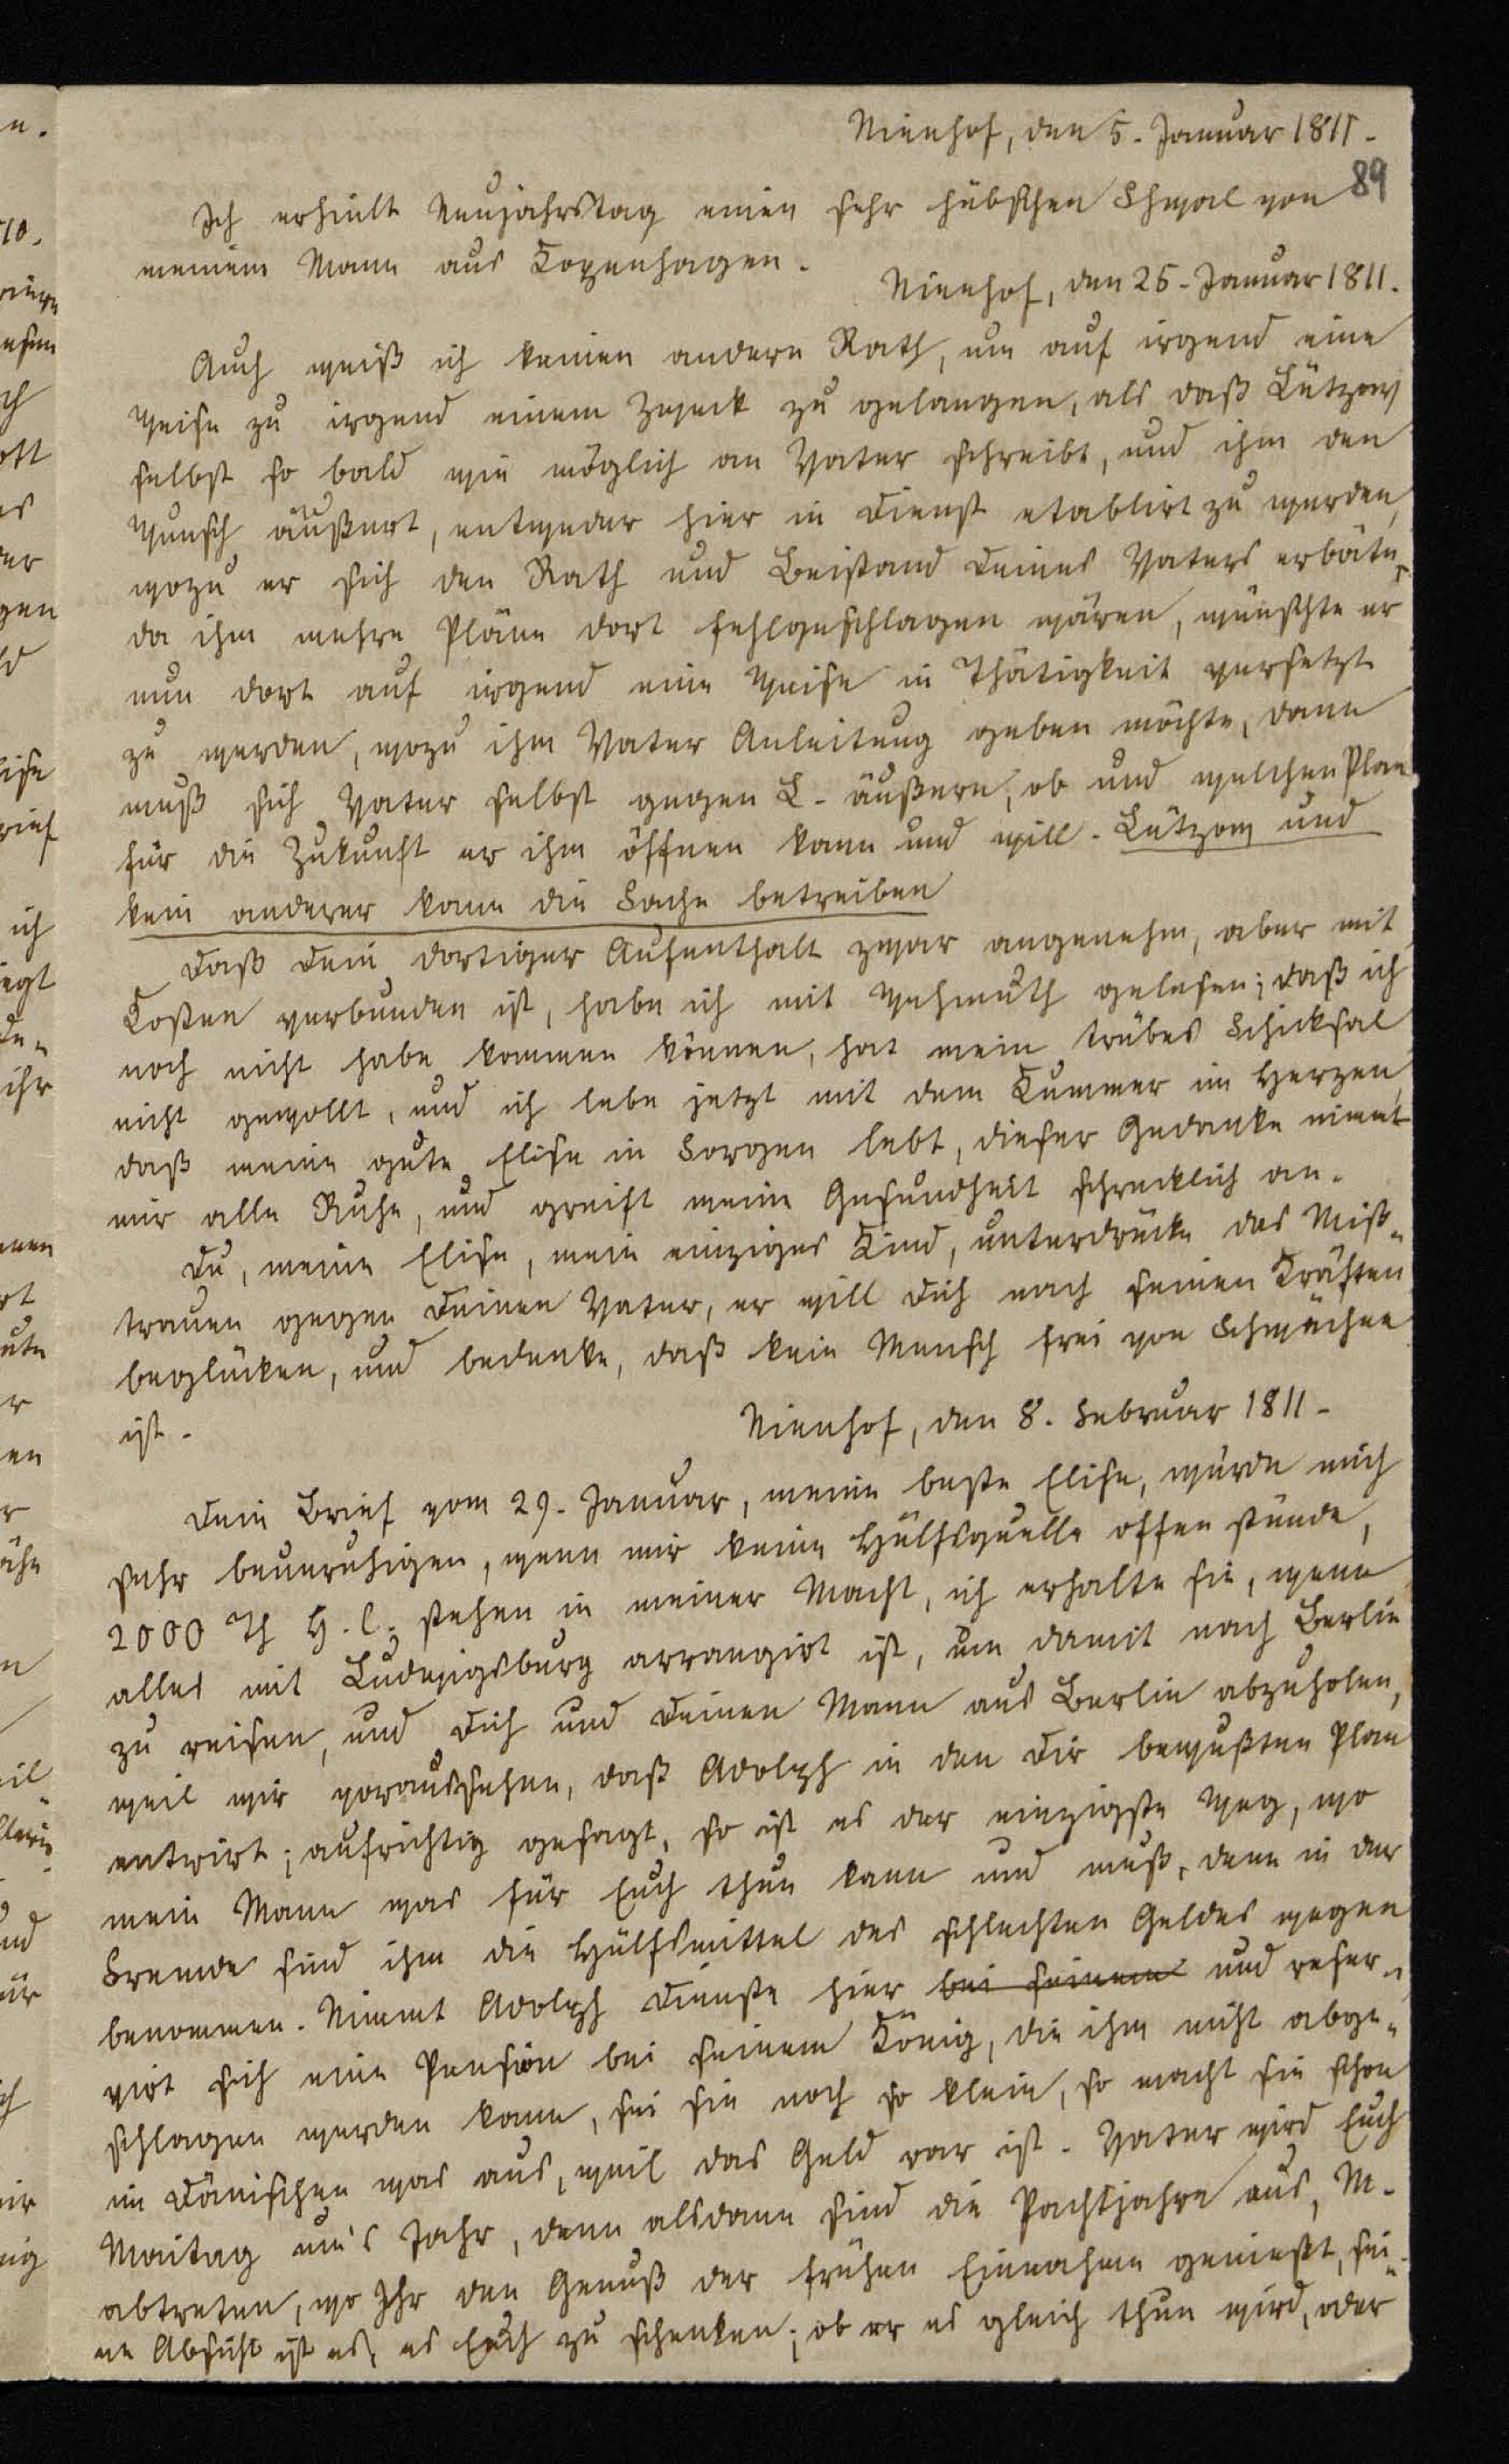 Nienhof, den 5. Januar 1811.
89
Ich erhielt Neujahrstag einen sehr hübschen Shwal von
meinem Mann aus Copenhagen.
Nienhof, den 25. Januar 1811.
Auch weiß ich keinen andern Rath, um auf irgend eine
Weise zu irgend einem Zweck zu gelangen, als daß Lützow
selbst so bald wie möglich an Vater schreibt, und ihm den
Wunsch äußert, entweder hier in Dienst etablirt zu werden,
wozu er sich den Rath und Beistand Deines Vaters erbäte,
da ihm mehre Pläne dort fehlgeschlagen wären, wünschte er
nun dort auf irgend eine Weise in Thätigkeit versetzt
zu werden, wozu ihm Vater Anleitung geben möchte, dann
muß sich Vater selbst gegen L. äußern, ob und welchen Plan
für die Zukunft er ihm öffnen kann und will. Lützow und
kein anderer kann die Sache betreiben
Daß Dein dortiger Aufenthalt zwar angenehm, aber mit
Kosten verbunden ist, habe ich mit Wehmuth gelesen; daß ich
noch nicht habe kommen können, hat mein trübes Schicksal
nicht gewollt, und ich lebe jetzt mit dem Kummer im Herzen,
daß meine gute Elise in Sorgen lebt, dieser Gedanke nimmt
mir alle Ruhe, und greift meine Gesundheit schrecklich an.
Du, meine Elise, mein einziges Kind, unterdrücke das Miß-
trauen gegen Deinen Vater, er will Dich nach seinen Kräften
beglücken, und bedenke, daß kein Mensch frei von Schwächen
ist.
Nienhof, den 8. Februar 1811.
Dein Brief vom 29. Januar, meine beste Elise, würde mich
sehr beunruhigen, wenn mir keine Hülfsquelle offen stünde,
2000 Th H. C. stehen in meiner Macht, ich erhalte sie, wenn
alles mit Ludwigsburg arrangirt ist, um damit nach Berlin
zu reisen, und Dich und Deinen Mann aus Berlin abzuholen,
weil wir voraussehen, daß Adolph in den Dir bewußten Plan
entrirt; aufrichtig gesagt, so ist es der einzigste Weg, wo
mein Mann was für Euch thun kann und muß, denn in der
Fremde sind ihm die Hülfsmittel des schlechten Geldes wegen
benommen. Nimmt Adolph Dienste hier bei seinem und reser-
virt sich eine Pension bei seinem König, die ihm nicht abge-
schlagen werden kann, sei sie noch so klein, so macht sie schon
im Dänischen was aus, weil das Geld rar ist. Vater wird Euch
Maitag um's Jahr, denn alsdann sind die Pachtjahre aus, M.
abtreten, wo Ihr den Genuß der frühen Einnahme genießt, sei-
ne Absicht ist es, es Euch zu schenken; ob er es gleich thun wird, oder